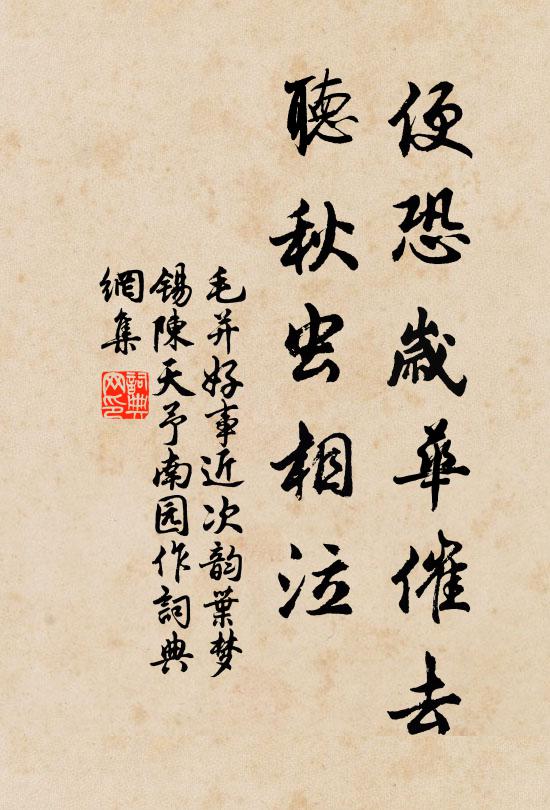 便恐歲華催去
聽秋虫相泣
毛并好事近次韵葉梦
錫陳天予南园作詞典
網集
詞典
网印